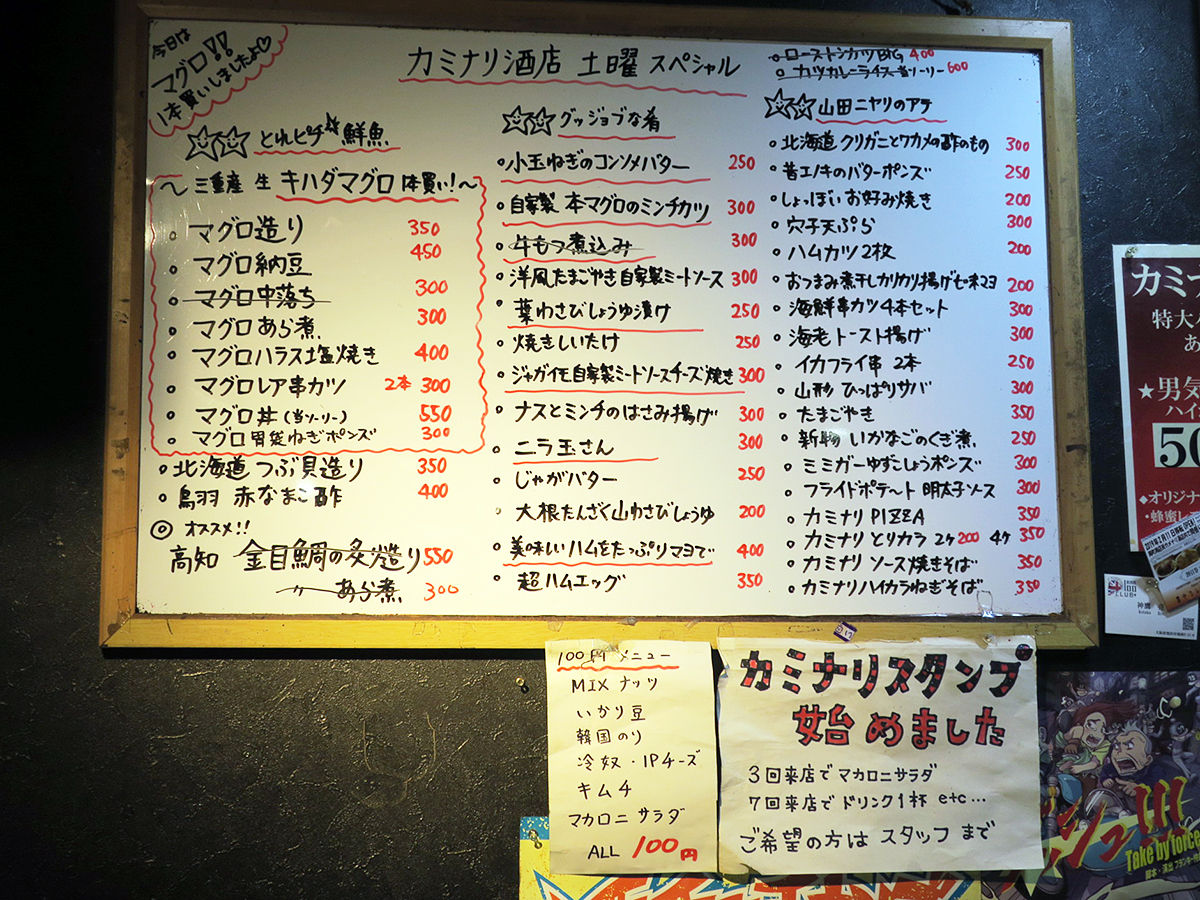 今日は
マグロ!!
1本買いしましたよ♡
カミナリ酒店 土曜 スペシャル
とれピチ 鮮魚
〜三重産 生 キハダマグロ 1本買い!〜
マグロ造り 350
マグロ納豆 450
マグロ中落ち 300
マグロあら煮 300
マグロハラス塩焼き 400
マグロレア串カツ 2本 300
マグロ丼(当ソーリー) 550
マグロ胃袋ねぎポンズ 300
北海道 つぶ貝造り 350
鳥羽 赤なまこ酢 400
◎オススメ!!
高知 金目鯛の炙り造り 550
〃 あら煮 300
グッジョブな肴
小玉ねぎのコンソメバター 250
自家製 本マグロのミンチカツ 300
牛もつ煮込み 300
洋風たまごやき自家製ミートソース 300
葉わさびしょうゆ漬け 250
焼きしいたけ 250
ジャガイモ自家製ミートソースチーズ焼き 300
ナスとミンチのはさみ揚げ 300
ニラ玉さん 300
じゃがバター 250
大根たんざく山わさびしょうゆ 200
美味しいハムをたっぷりマヨで 400
超ハムエッグ 350
ローストンカツBIG 400
カツカレーライス当ソーリー 600
山田ニヤリのアテ
北海道 クリガニとワカメの酢のもの 300
昔エノキのバターポンズ 250
しょぼいお好み焼き 200
穴子天ぷら 300
ハムカツ2枚 200
おつまみ煮干しカリカリ揚げ七味マヨ 200
海鮮串カツ4本セット 300
海老トースト揚げ 300
イカフライ串 2本 250
山形 ひっぱりサバ 300
たまごやき 350
新物 いかなごのくぎ煮 250
ミミガーゆずこしょうポンズ 300
フライドポテート 明太子ソース 300
カミナリ PIZZA 350
カミナリ とりカラ 2ケ200 4ケ350
カミナリ ソース焼きそば 350
カミナリハイカラねぎそば 350
100円 メニュー
MIX ナッツ
いかり豆
韓国のり
冷奴・1Pチーズ
キムチ
マカロニ サラダ
ALL 100円
カミナリスタンプ
始めました
3回来店でマカロニサラダ
7回来店でドリンク1杯 etc…
ご希望の方は スタッフ まで
カミー
特大
あ
★男気
ハイ
50
◆オリジナ
・蜂蜜レ
CLUB
シュ!!!
Take by force